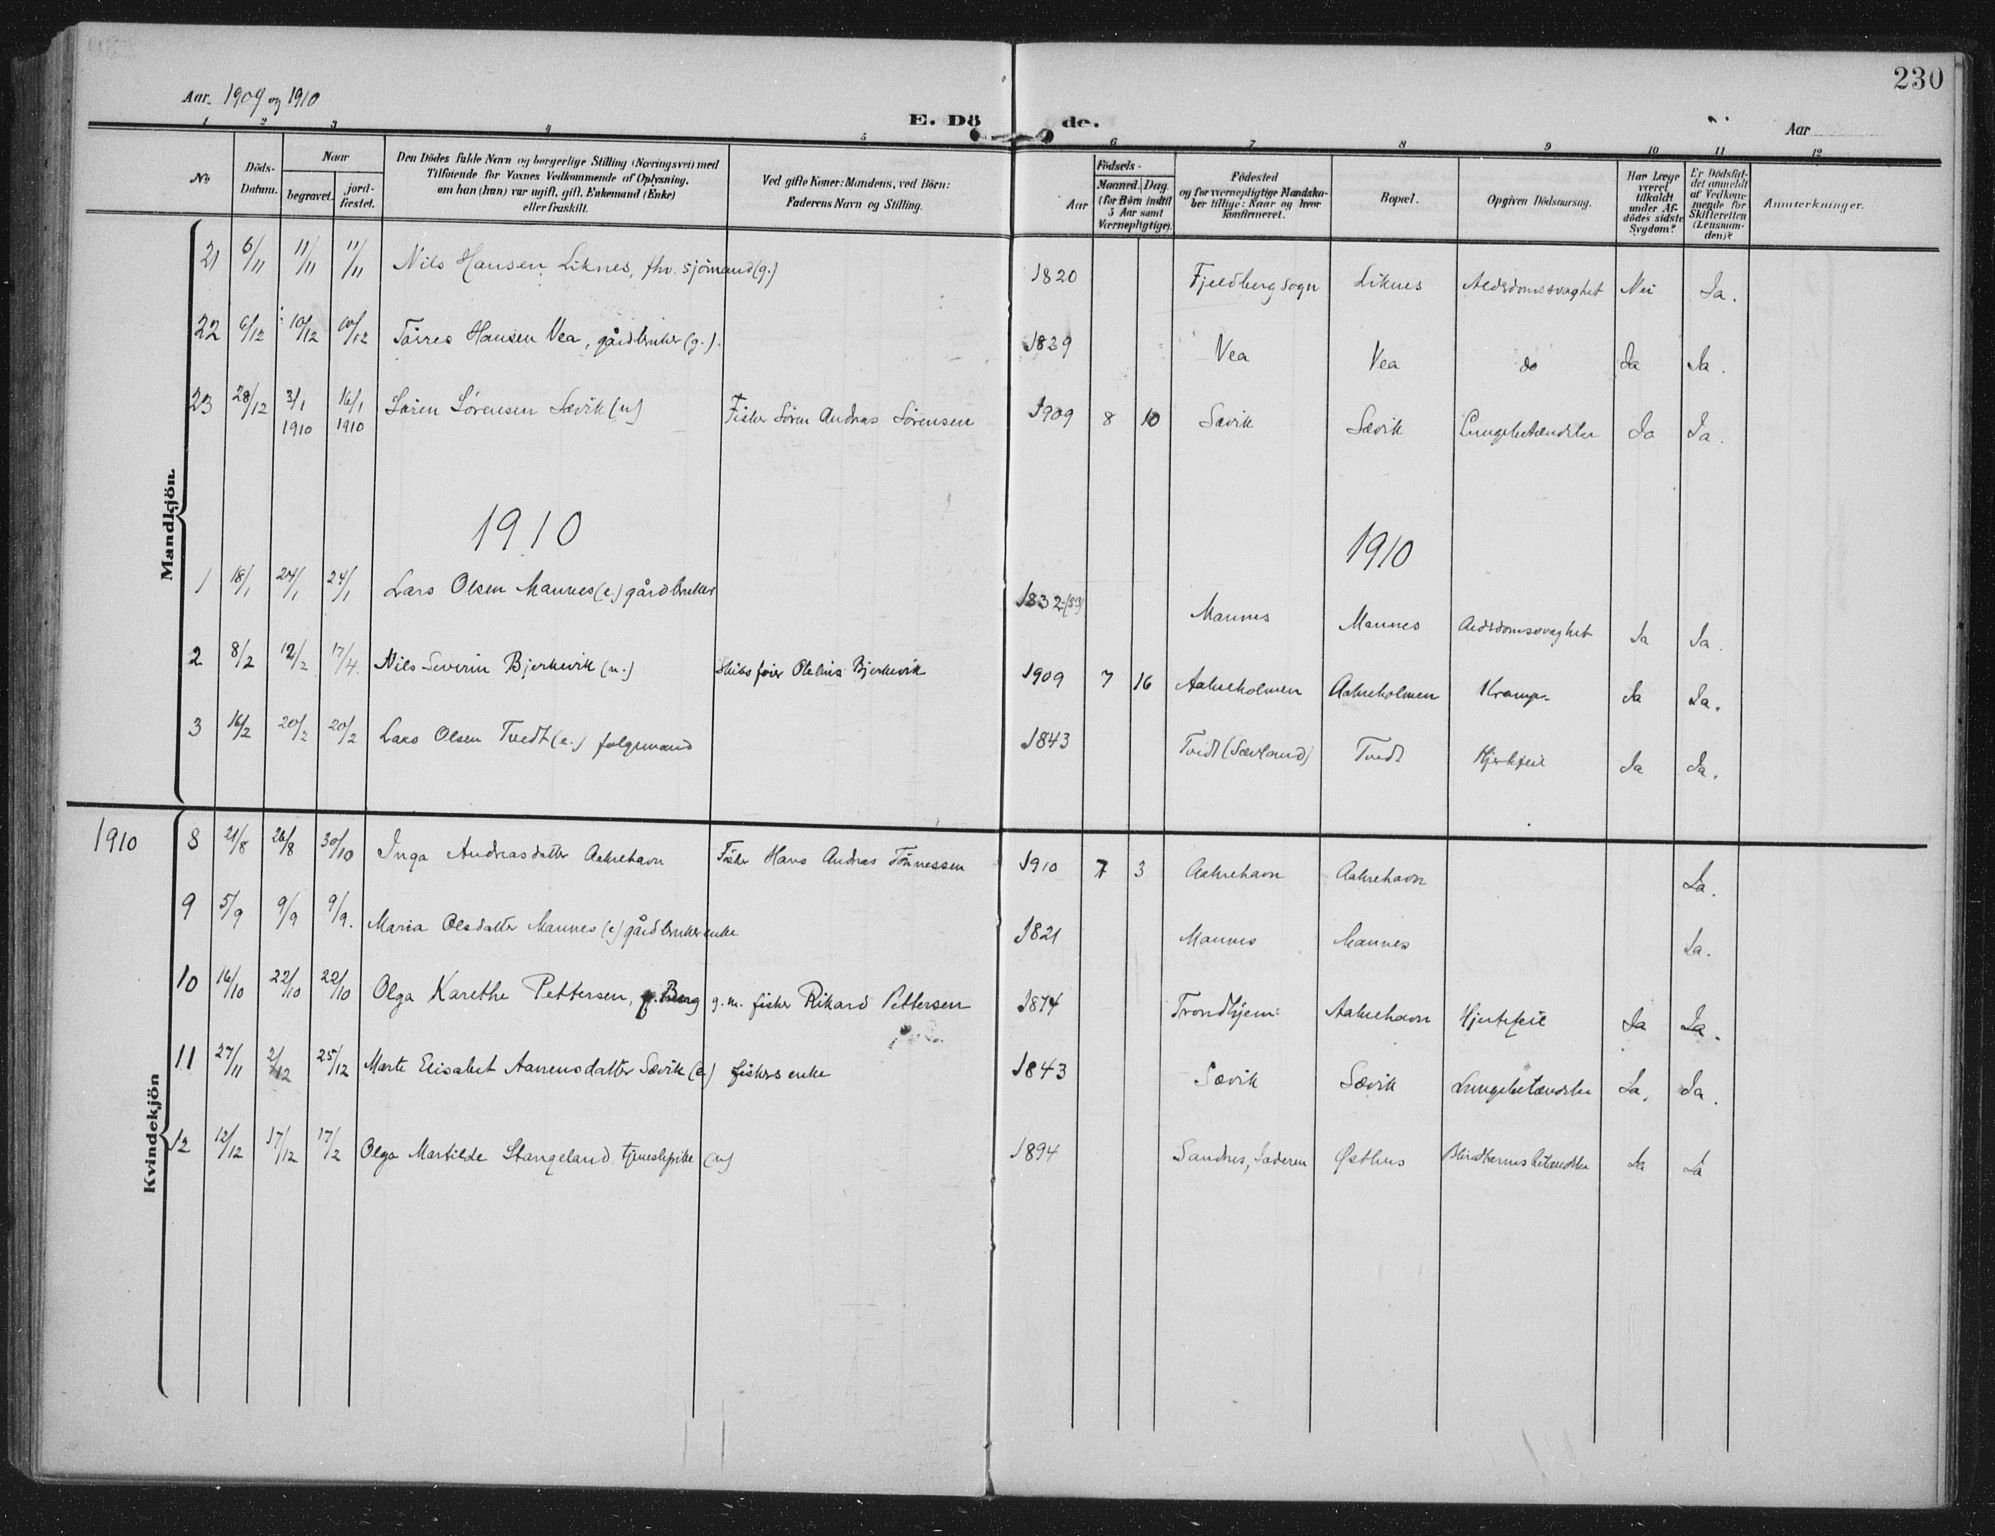 230
Aar. 1909 og 1910
E. Döde.
Aar
1 2 3 4 5 6 7 8 9 10 11 12
No
Döds-Datum.
Naar
begravet. jord-fæstet.
Den Dödes fulde Navn og borgerlige Stilling (Næringsvei) med
Tilföiende for Voxnes Vedkommende af Oplysning,
om han (hun) var ugift, gift, Enkemand (Enke)
eller fraskilt.
Ved gifte Koner: Mandens, ved Börn:
Faderens Navn og Stilling.
Födsels-
Aar Maaned. Dag.
(for Börn indtil
5 Aar samt
Værnepligtige).
Födested
og for værnepligtige Mandska-
ber tillige: Naar og hvor
konfirmeret.
Bopæl.
Opgiven Dödsaarsag.
Har Læge
været
tilkaldt
under Af-
dödes sidste
Sygdom?
Er Dödsfal-
det anmeldt
af Vedkom-
mende for
Skifteretten
(Lensman-
den)?
Anmærkninger.
Mandkjön.
21 6/11 11/11 11/11 Nils Hansen Liknes, fhv. sjömand (g.) 1820 Fjeldberg sogn Liknes Aldsdomssvaghet Nei Ja.
22 6/12 10/12 10/12 Törres Hansen Vea, gårdbruker (g.). 1829 Vea Vea do Ja Ja.
23 28/12 3/1 1910 16/1 1910 Sören Sørensen Sævik (u) Fisker Sören Andreas Sörensen 1909 8 10 Sævik Sævik Lungebetændelse Ja Ja.
1910 1910
1 18/1 24/1 24/1 Lars Olsen Mannes (e.) gårdbruker 1832 Mannes Mannes Aldsdomssvaghet Ja Ja.
2 8/2 12/2 17/4. Nils Severin Bjerkevik (u.) Bjerkevik 1909 7 16 Aakreholmen Aakreholmen Krampe Ja Ja.
3 16/2 20/2 20/2 Lars Olsen Tvedt (e.) folgemand 1843 Tvedt (Sævland) Tvedt Hjertefeil Ja Ja.
Kvindekjön
1910 8 21/8 26/8 30/10 Inga Andreasdatter Aakrehavn Fisker Hans Andreas Tönnessen 1910 7 3 Aakrehavn Aakrehavn Ja.
9 5/9 9/9 9/9. Maria Olsdatter Mannes (e) gårdbrukerenke 1821 Mannes Mannes Ja.
10 16/10 22/10 22/10 Olga Karethe Pettersen, f. Berg g. m. fisker Rikard Pettersen 1874 Trondhjem Aakrehavn Hjertefeil Ja Ja.
11 27/11 2/12 25/12 Marte Elisabet Aanensdatter Sævik (e) fiskers enke 1843 Sævik Sævik Lungebetændelse Ja. Ja.
12 12/12 17/12 17/2 Olga Martilde Stangeland tjenestepike (u) 1894 Sandnes, Jæderen Østhus Blindtarmsbetændelse Ja Ja